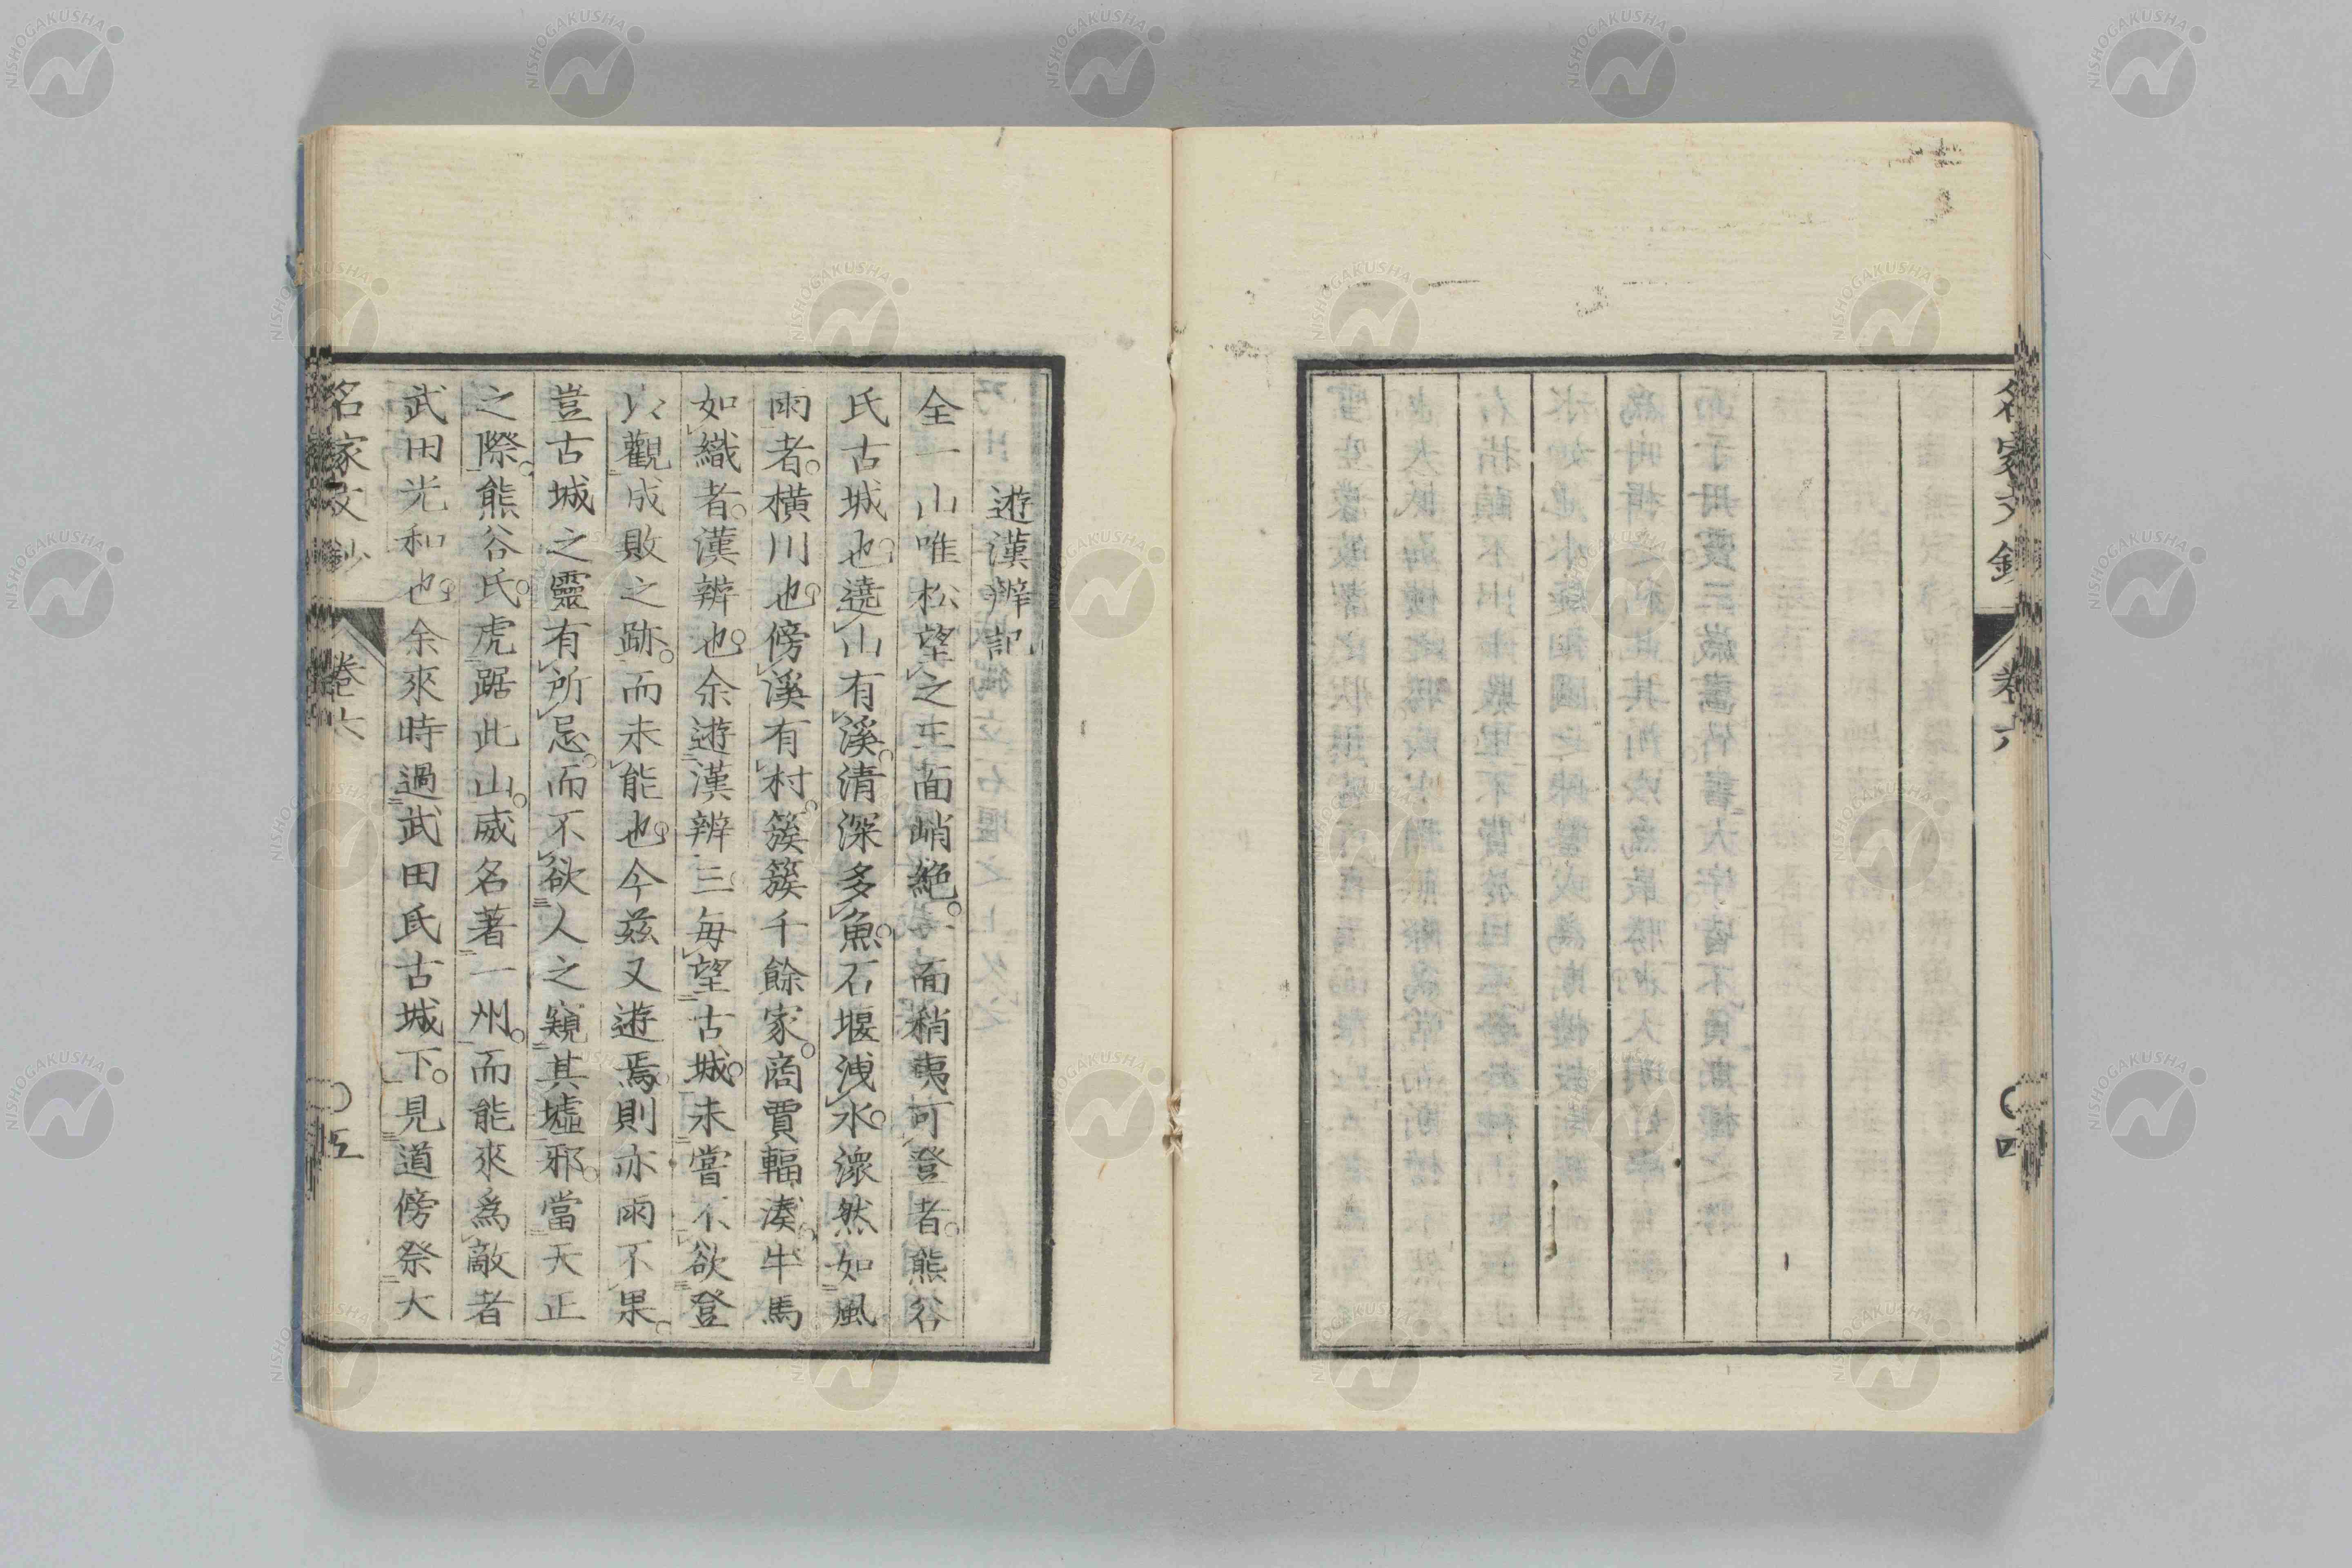 名家文鈔
卷六
〇四
遊漢辨記
全一山唯松望之三面峭絶。一面稍夷可登者。熊谷
氏古城也。遶山有溪。清深多魚。石堰洩水。澴然如風
雨者。橫川也。傍溪有村。簇簇千餘家。商賈輻湊。牛馬
如織者。漢辨也。余遊漢辨三。毎望古城。未嘗不欲登
以觀成敗之跡。而未能也。今茲又遊焉。則亦雨不果。
豈古城之靈有所忌。而不欲人之窺其墟邪。當天正
之際。熊谷氏。虎踞此山。威名著一州。而能來爲敵者
武田光和也。余來時過武田氏古城下。見道傍祭大
名家文鈔
卷六
〇五